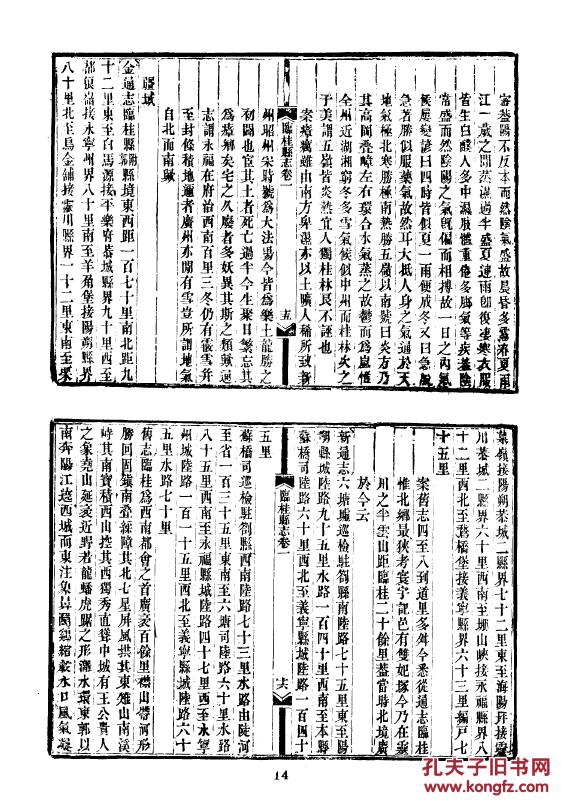 氣蒸陽不反本而然陰氣盛故晨昏多露春夏雨
江一歲之間蒸濕過半盛夏連雨即復淒寒衣服
皆生白醭人多中濕肢體重倦多腳氣等疾蓋陰
常盛而然陰陽之氣既偏而相搏故一日之內氣
候屢變諺曰四時皆似夏一雨便成冬又曰急脫
急著勝似服藥氣故然耳大抵人身之氣通於天
地氣極北寒勝極南熱勝五嶺以南號曰炎方乃
其高岡疊嶂左右環合水氣蒸之故鬱而為嵐惟
全州近湖湘窮冬多雪氣候似中州而桂林次之
子美謂五嶺皆炎熱宜人獨桂林良不誣也
案瘴癘雖由南方卑濕亦以土曠人稀所致新
臨桂縣志 卷一
五
州昭州宋時號為大法場今皆為樂土龍勝之
初闢也宦其土者死亡過半今生聚日繁志其
為瘴鄉矣宅之久廢者多妖異其斯之類歟通
志謂永福在府治西南百里三冬仍有霰雪并
至封條積地運者廣州亦間有雪豈所謂地氣
自北而南歟
疆域
金通志臨桂縣附郭縣境東西距一百七十里南北距九
十二里東至白馬源接平樂府恭城縣界九十里西至
都狼嵩接永寧州界八十里南至羊角堡接陽朔縣界
八十里北至烏金舖接靈川縣界一十二里東南至案
葉嶺接陽朔恭城二縣界七十二里東至海陽坪接靈
川恭城二縣界六十里西南至堋山峽接永福縣界八
十二里西北至鷄橋堡接義寧縣界六十三里編戶七
十五里
案舊志四至八到道里多舛今悉從通志臨桂
惟北鄉最狹考寰宇記邑有雙妃塚今乃在靈
川之平雲山距臨桂二十餘里蓋當時北境廣
於今云
新通志六塘驛巡檢駐劄縣南陸路七十五里東至陽
朔縣城陸路九十五里水路一百四十里西南至本縣
蘇橋司陸路六十里西北至義寧縣城陸路一百四十
臨桂縣志 卷一
十六
五里
蘇橋司巡檢駐劄縣西南陸路七十三里水路由陡河
至省一百三十五里東南至六塘司陸路六十里水路
八十五里西南至永福縣城陸路四十七里西至永寧
州城陸路一百一十五里西北至義寧縣城陸路六十
五里水路七十里
舊志臨桂為西南都會之首廣袤百餘里襟山帶河形
勝回固鎮南疊綵障其北七星屏風拱其東雉山南溪
峙其南寶積西山控其西獨秀直聳中城有王公貴人
之象堯山延袤近野者龍蟠虎踞之形灕水環東郭以
南奔陽江遶西城而東注集
水口風氣凝
14
孔夫子旧书网
KONGFZ.COM